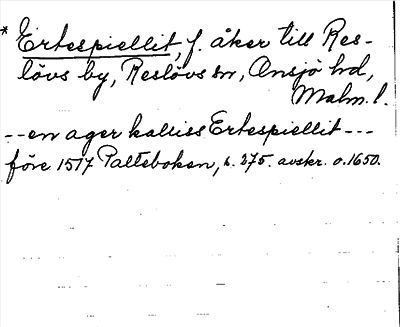 * Ertespiellit, f. åker till Res-
lövs by, Reslövs sn, Onsjö hd,
Malm. l.
-- en ager kalliss Ertespiellit ---
före 1517 Palteboken, s. 275. avskr. o. 1650.